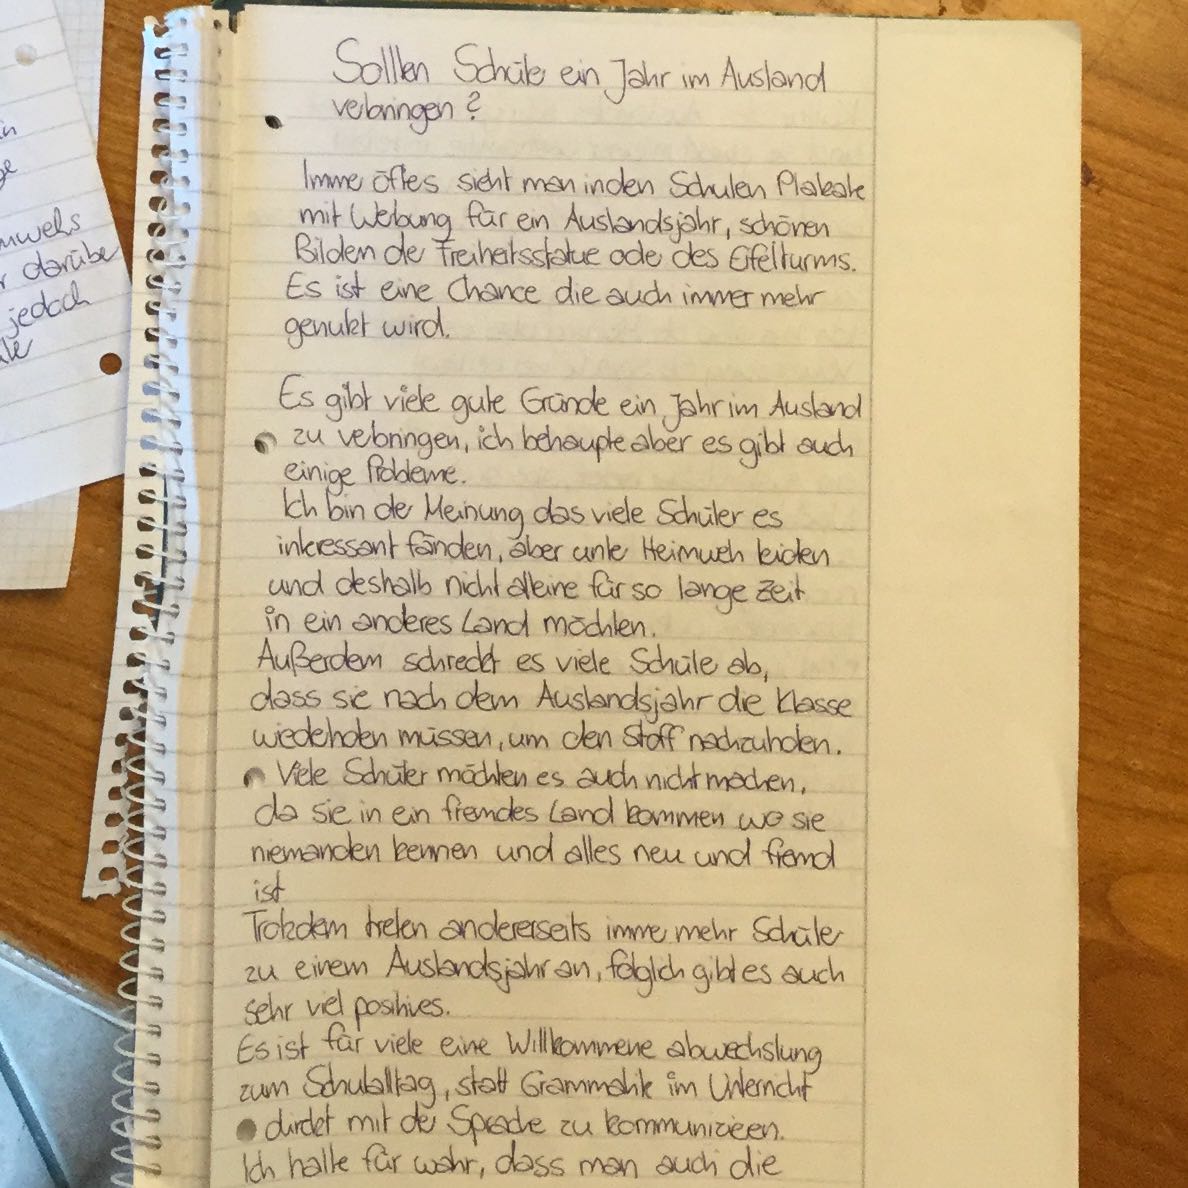 in
ge
mwehs
r darüber
jedoch
Sollten Schüler ein Jahr im Ausland
verbringen?
Immer öfters sieht man in den Schulen Plakate
mit Werbung für ein Auslandsjahr, schönen
Bildern der Freiheitsstatue oder des Eifelturms.
Es ist eine Chance die auch immer mehr
genutzt wird.
Es gibt viele gute Gründe ein Jahr im Ausland
zu verbringen, ich behaupte aber es gibt auch
einige Probleme.
Ich bin der Meinung das viele Schüler es
interessant fänden, aber unter Heimweh leiden
und deshalb nicht alleine für so lange Zeit
in ein anderes Land möchten.
Außerdem schreckt es viele Schüler ab,
dass sie nach dem Auslandsjahr die Klasse
wiederholen müssen, um den Stoff nachzuholen.
Viele Schüler möchten es auch nicht machen,
da sie in ein fremdes Land kommen wo sie
niemanden kennen und alles neu und fremd
ist
Trotzdem treten andererseits immer mehr Schüler
zu einem Auslandsjahr an, folglich gibt es auch
sehr viel positives.
Es ist für viele eine Willkommene abwechslung
zum Schulalltag, statt Grammatik im Unterricht
direkt mit der Sprache zu kommunizieren.
Ich halte für wahr, dass man auch die